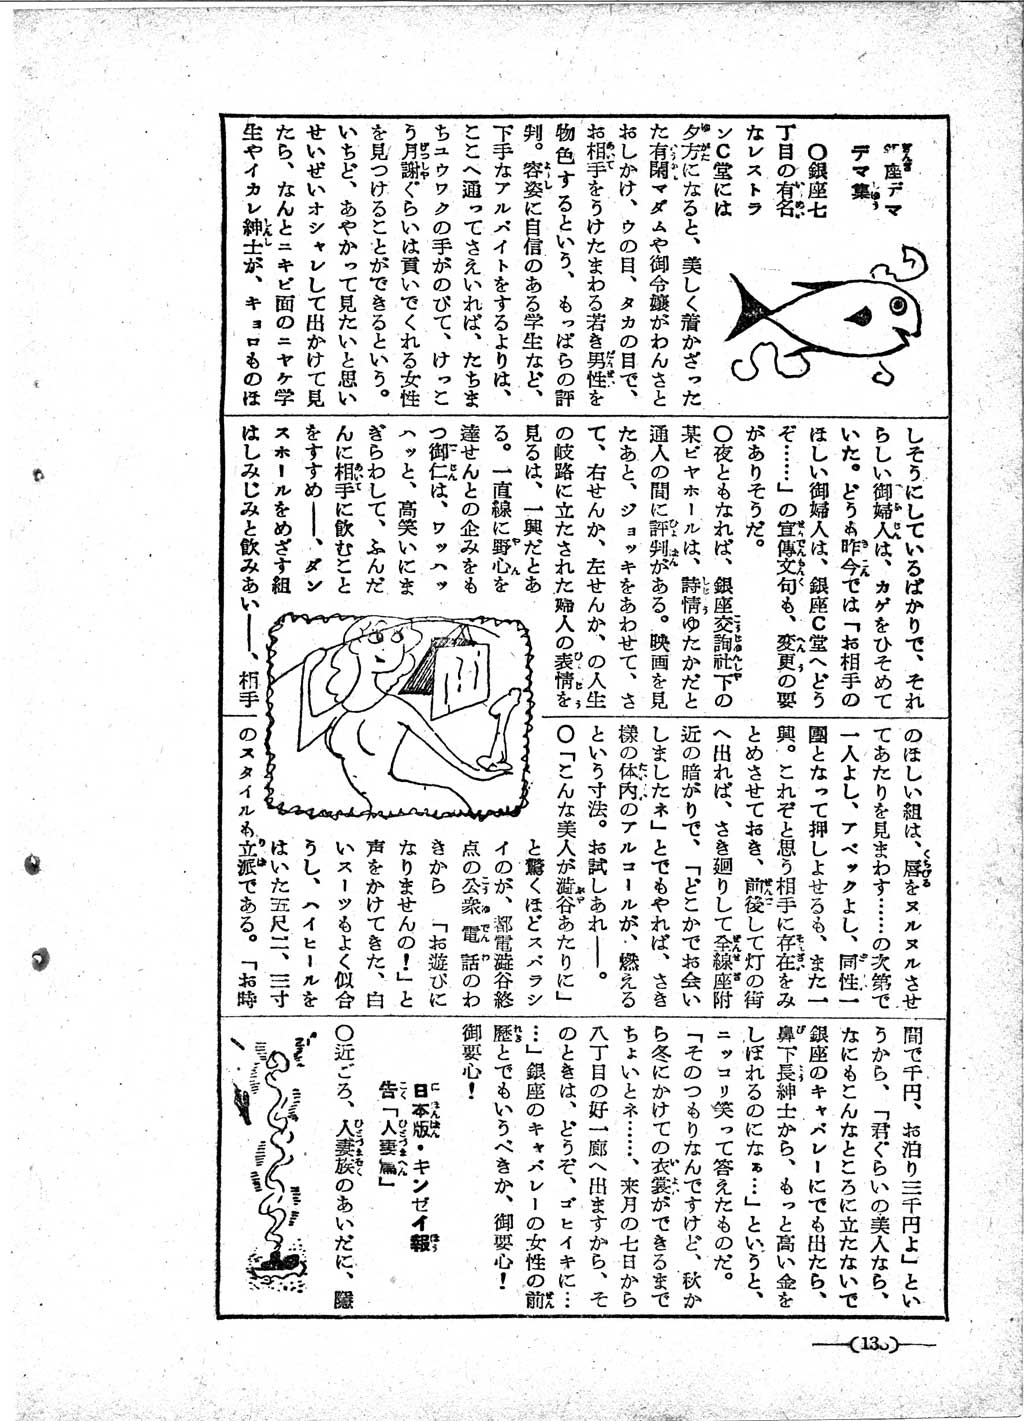 座デマ
デマ集
〇銀座七
丁目の有名
なレストラ
ンC堂には
夕方になると、美しく着かざった
た有閑マダムや御令嬢がわんさと
おしかけ、ウの目、タカの目で、
お相手をうけたまわる若き男性を
物色するという、もっぱらの評
判。容姿に自信のある学生など、
下手なアルバイトをするよりは、
ここへ通ってさえいれば、たちま
ちユウワクの手がのびて、けっこ
う月謝ぐらいは貢いでくれる女性
を見つけることができるという。
いちど、あやかって見たいと思い
せいぜいオシャレして出かけて見
たら、なんとニキビ面のニヤケ学
生やイカレ紳士が、キョロものほ
しそうにしているばかりで、それ
らしい御婦人は、カゲをひそめて
いた。どうも昨今では「お相手の
ほしい御婦人は、銀座C堂へどう
ぞ……」の宣傳文句も、変更の要
がありそうだ。
〇夜ともなれば、銀座交詢社下の
某ビヤホールは、詩情ゆたかだと
通人の間に評判がある。映画を見
たあと、ジョッキをあわせて、さ
て、右せんか、左せんか、の人生
の岐路に立たされた婦人の表情を
見るは、一興だとあ
る。一直線に野心を
達せんとの企みをも
つ御仁は、ワッハッ
ハッと、高笑いにま
ぎらわして、ふんだ
んに相手に飲むこと
をすすめ――、ダン
スホールをめざす組
はしみじみと飲みあい――、相手
のほしい組は、唇をヌルヌルさせ
てあたりを見まわす……の次第で
一人よし、アベックよし、同性一
團となって押しよせるも、また一
興。これぞと思う相手に存在をみ
とめさせておき、前後して灯の街
へ出れば、さき廻りして全線座附
近の暗がりで、「どこかでお会い
しましたネ」とでもやれば、さき
様の体内のアルコールが、燃える
という寸法。お試しあれ――。
〇「こんな美人が澁谷あたりに」
と驚くほどスバラシ
イのが、都電澁谷終
点の公衆電話のわ
きから「お遊びに
なりませんの！」と
声をかけてきた、白
いスーツもよく似合
うし、ハイヒールを
はいた五尺二、三寸
のスタイルも立派である。「お時
間で千円、お泊り三千円よ」とい
うから、「君ぐらいの美人なら、
なにもこんなところに立たないで
銀座のキャバレーにでも出たら、
鼻下長紳士から、もっと高い金を
しぼれるのになぁ…」というと、
ニッコリ笑って答えたものだ。
「そのつもりなんですけど、秋か
ら冬にかけての衣裳ができるまで
ちょいとネ……、来月の七日から
八丁目の好一廊へ出ますから、そ
のときは、どうぞ、ゴヒイキに…
…」銀座のキャバレーの女性の前
歴とでもいうべきか、御要心！
御要心！
日本版・キンゼイ報
告「人妻篇」
〇近ごろ、人妻族のあいだに、隱